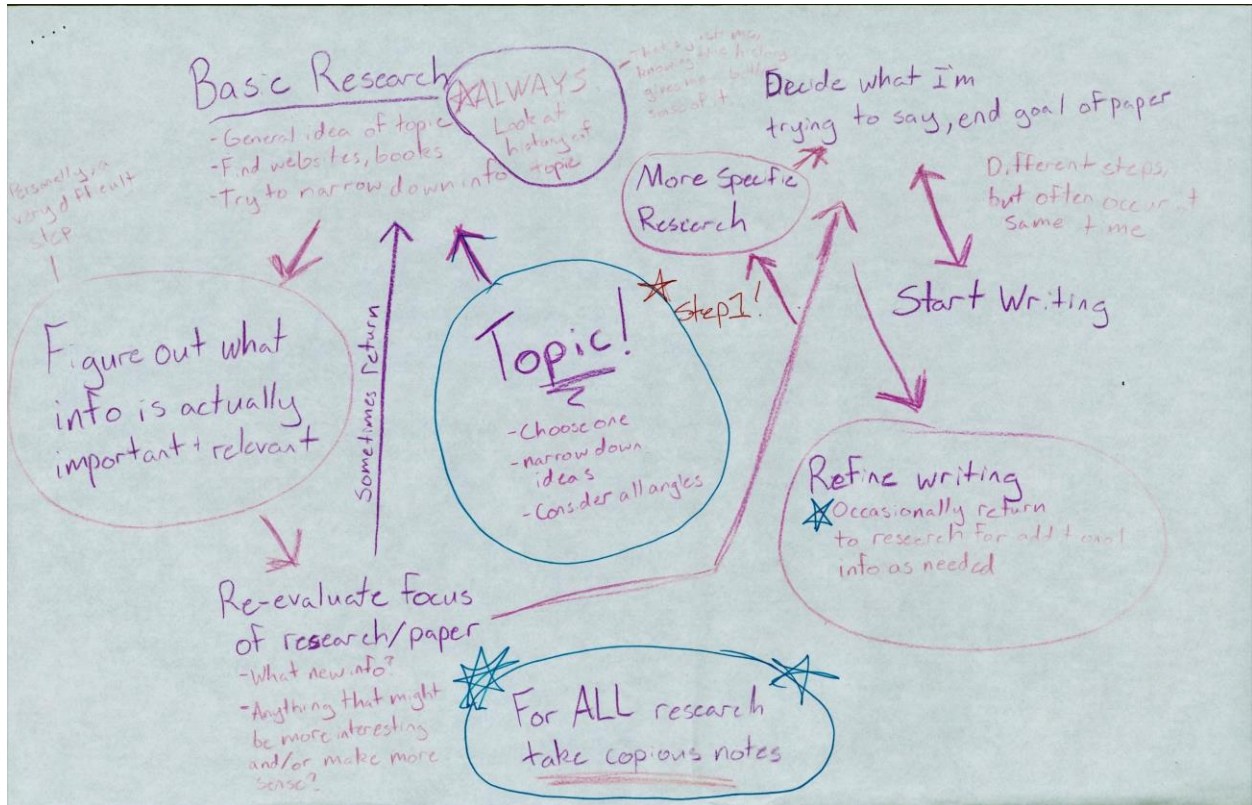 Basic Research
-General idea of topic
-Find websites, books
-Try to narrow down info
ALWAYS
Look at
history of
topic
knowing the history
gives me a better
sense of it
Decide what I'm
trying to say, end goal of paper
Different steps,
but often occur at
same time
More Specific
Research
Start Writing
Personally, a
very difficult
step
Figure out what
info is actually
important + relevant
Sometimes return
Topic!
-Choose one
-narrow down
ideas
-Consider all angles
Step 1!
Refine writing
Occasionally return
to research for additional
info as needed
Re-evaluate focus
of research/paper
-What new info?
-Anything that might
be more interesting
and/or make more
sense?
For ALL research
take copious notes